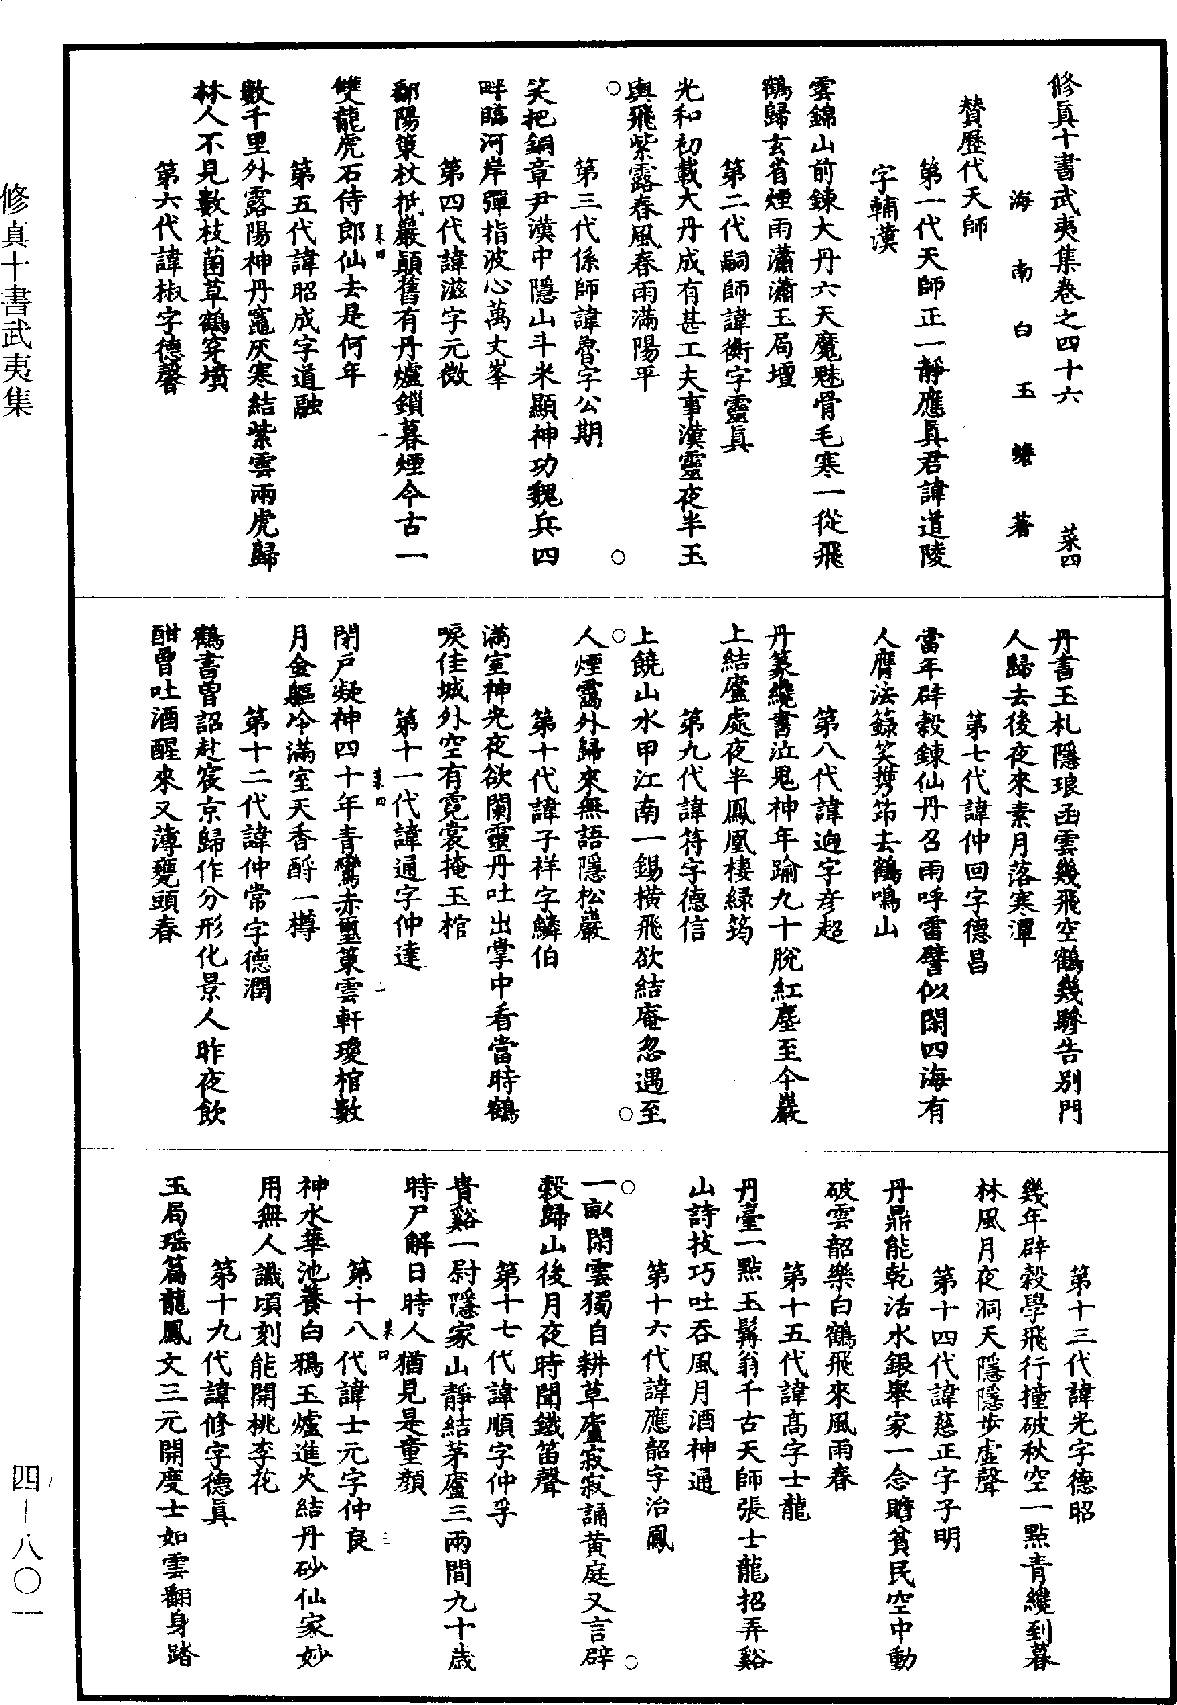 修眞十書武夷集卷之四十六　菜四
海南白玉蟾著
贊歷代天師
第一代天師正一靜應眞君諱道陵
字輔漢
雲錦山前鍊大丹六天魔魅骨毛寒一從飛
鶴歸玄省煙雨瀟瀟玉局壇
第二代嗣師諱衡字靈眞
光和初載大丹成有甚工夫事漢靈夜半玉
輿飛紫露春風春雨滿陽平
第三代係師諱魯字公期
笑把銅章尹漢中隱山斗米顯神功魏兵四
畔臨河岸彈指波心萬丈峯
第四代諱滋字元微
鄱陽策杖抵巖顛舊有丹爐鎖暮煙今古一
菜四　一
雙龍虎石侍郎仙去是何年
第五代諱昭成字道融
數千里外露陽神丹竈灰寒結紫雲兩虎歸
林人不見數枝菌草鶴穿墳
第六代諱椒字德馨
丹書玉札隱琅函雲幾飛空鶴幾驂告別門
人歸去後夜來素月落寒潭
第七代諱仲回字德昌
當年辟穀鍊仙丹召雨呼雷譬似閑四海有
人膺法籙笑携筇去鶴鳴山
第八代諱迥字彥超
丹篆纔書泣鬼神年踰九十脫紅塵至今巖
上結廬處夜半鳳凰棲綠筠
第九代諱符字德信
上饒山水甲江南一錫橫飛欲結庵忽遇至
人煙靄外歸來無語隱松巖
第十代諱子祥字麟伯
滿室神光夜欲闌靈丹吐出掌中看當時鶴
唳佳城外空有霓裳掩玉棺
第十一代諱通字仲達
菜四　二
閉戶凝神四十年青鸞赤璽篆雲軒瓊棺數
月金軀冷滿室天香酹一樽
第十二代諱仲常字德潤
鶴書曾詔赴宸京歸作分形化景人昨夜飲
酣曾吐酒醒來又薄甕頭春
第十三代諱光字德昭
幾年辟穀學飛行撞破秋空一點青纔到暮
林風月夜洞天隱隱步虛聲
第十四代諱慈正字子明
丹鼎能乾活水銀舉家一念贍貧民空中動
破雲韶樂白鶴飛來風雨春
第十五代諱高字士龍
丹臺一點玉髯翁千古天師張士龍招弄谿
山詩技巧吐吞風月酒神通
第十六代諱應韶字治鳳
一畝閑雲獨自耕草廬寂寂誦黃庭又言辟
穀歸山後月夜時聞鐵笛聲
第十七代諱順字仲孚
貴谿一尉隱家山靜結茅廬三兩間九十歲
時尸解日時人猶見是童顏
菜四　三
第十八代諱士元字仲良
神水華池養白鴉玉爐進火結丹砂仙家妙
用無人識頃刻能開桃李花
第十九代諱修字德眞
玉局瑤篇龍鳳文三元開度士如雲翻身踏
修真十書武夷集
四－八〇一